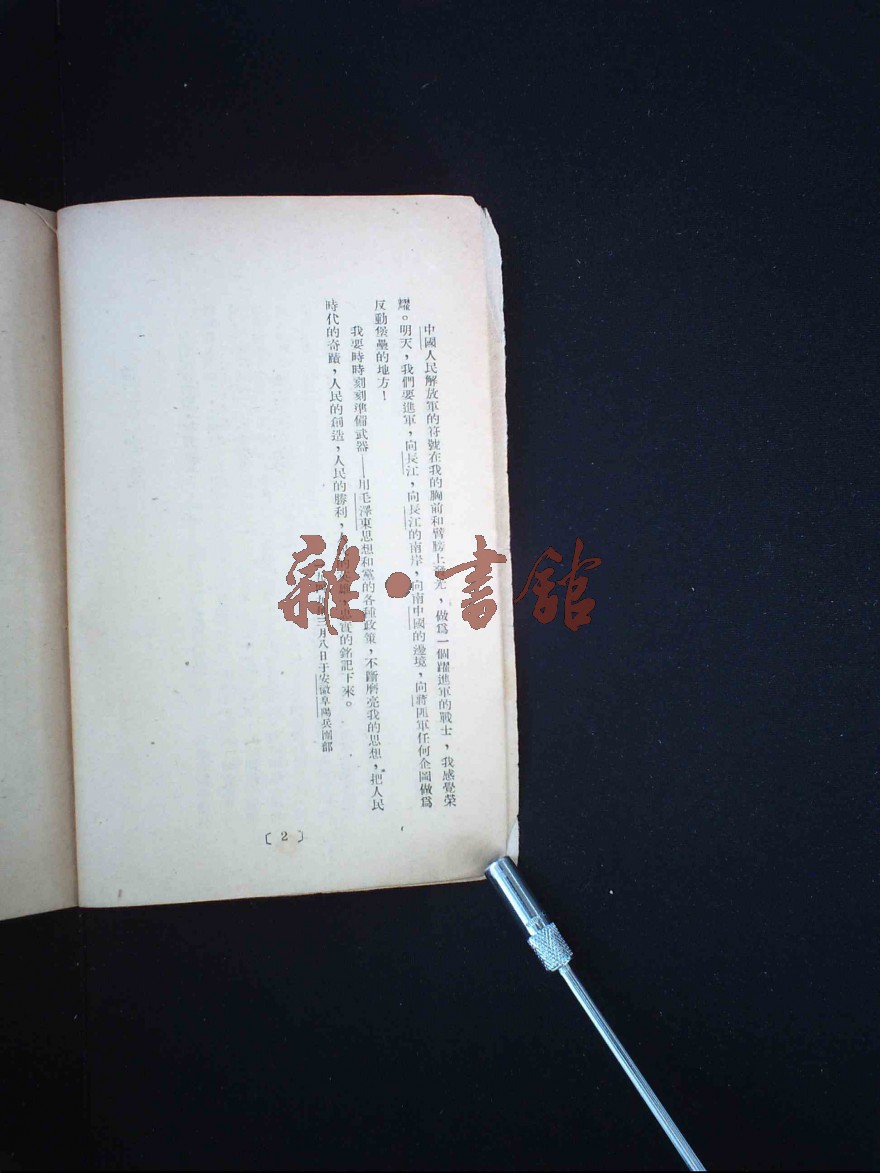 中國人民解放軍的符號在我的胸前和臂膀上發光，做爲一個躍進軍的戰士，我感覺榮
耀。明天，我們要進軍，向長江，向長江的南岸，向南中國的邊境，向蔣匪軍任何企圖做爲
反動堡壘的地方！
我要時時刻刻準備武器——用毛澤東思想和黨的各種政策，不斷磨亮我的思想，把人民
時代的奇蹟，人民的創造，人民的勝利，實的銘記下來。
三月八日于安徽阜陽兵團部
〔2〕
雜·書館